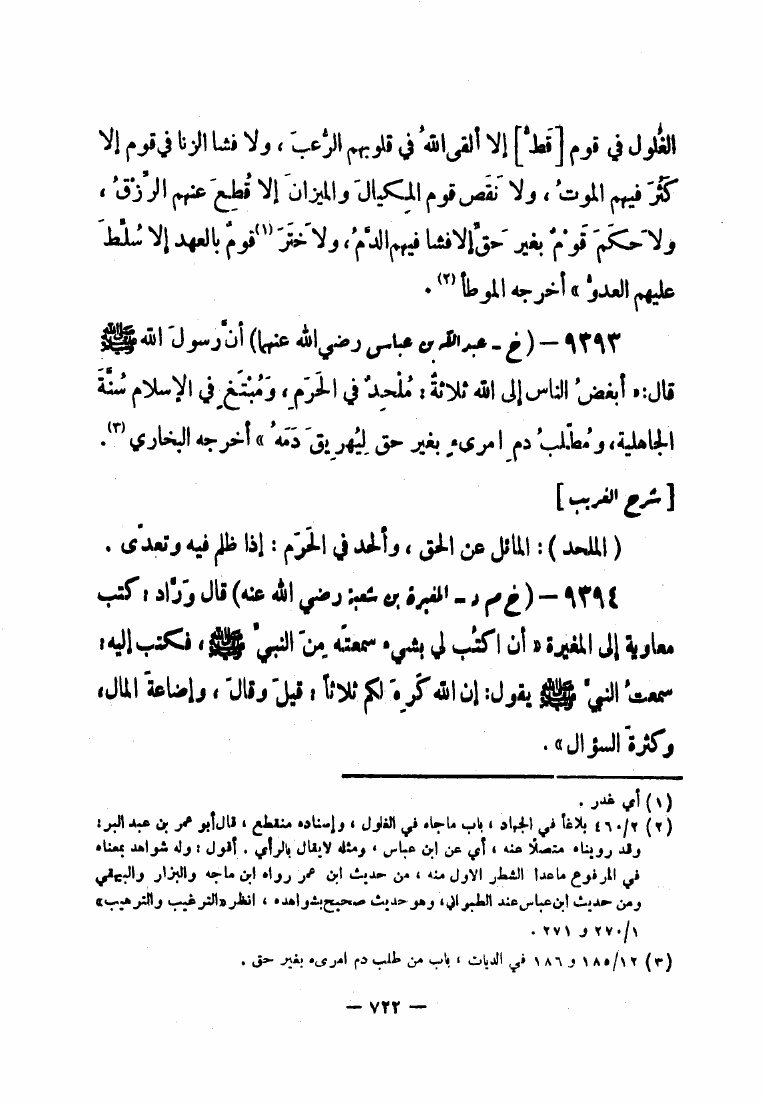 الغُلول في قوم [قَطُّ] إلا ألقى اللهُ في قلوبهم الرُّعبَ ، ولا فشا الزنا في قوم إلا
كَثُرَ فيهم الموتُ ، ولا نَقَص قوم المِكيالَ والميزانَ إلا قُطِعَ عنهم الرِّزْقُ ،
ولا حَكَمَ قَوْمٌ بغير حَقٍّ إلا فشا فيهم الدَّمُ ، ولا خَتَرَ (١) قومٌ بالعهد إلا سُلِّطَ
عليهم العدوُّ » أخرجه الموطأ (٢) .
٩٣٩٣ — ( خ - عبد الله بن عباس رضي الله عنهما ) أنَّ رسولَ الله ﷺ
قال : « أبغضُ الناس إلى الله ثلاثةٌ : مُلْحِدٌ في الحَرَمِ ، وَمُبْتَغٍ في الإسلام سُنَّةَ
الجاهلية ، ومُطَّلِبُ دمِ امرىءٍ بغير حق لِيُهَرِيقَ دَمَهُ » أخرجه البخاري (٣) .
[ شرح الغريب ]
( الملحد ) : المائل عن الحق ، وألحد في الحَرَم : إذا ظلم فيه وتعدَّى .
٩٣٩٤ — ( خ م د - المغيرة بن شعبة رضي الله عنه ) قال وَرَّاد : كتب
معاوية إلى المغيرة « أن اكتُب لي بشيء سمعتَه مِنَ النبيِّ ﷺ ، فكتب إليه :
سمعتُ النبيَّ ﷺ يقول : إن الله كَرِهَ لكم ثلاثاً : قيلَ وقالَ ، وإضاعةَ المال ،
وكثرةَ السؤال » .
(١) أي غدر .
(٢) ٤٦٠/٢ بلاغاً في الجهاد ، باب ماجاء في الغلول ، وإسناده منقطع ، قال أبو عمر بن عبد البر :
وقد رويناه متصلاً عنه ، أي عن ابن عباس ، ومثله لايقال بالرأي . أقول : وله شواهد بمعناه
في المرفوع ماعدا الشطر الاول منه ، من حديث ابن عمر رواه ابن ماجه والبزار والبيهقي
ومن حديث ابن عباس عند الطبراني ، وهو حديث صحيح بشواهده ، انظر « الترغيب والترهيب »
٢٧٠/١ و ٢٧١ .
(٣) ١٨٥/١٢ و ١٨٦ في الديات ، باب من طلب دم امرىء بغير حق .
— ٧٢٢ —